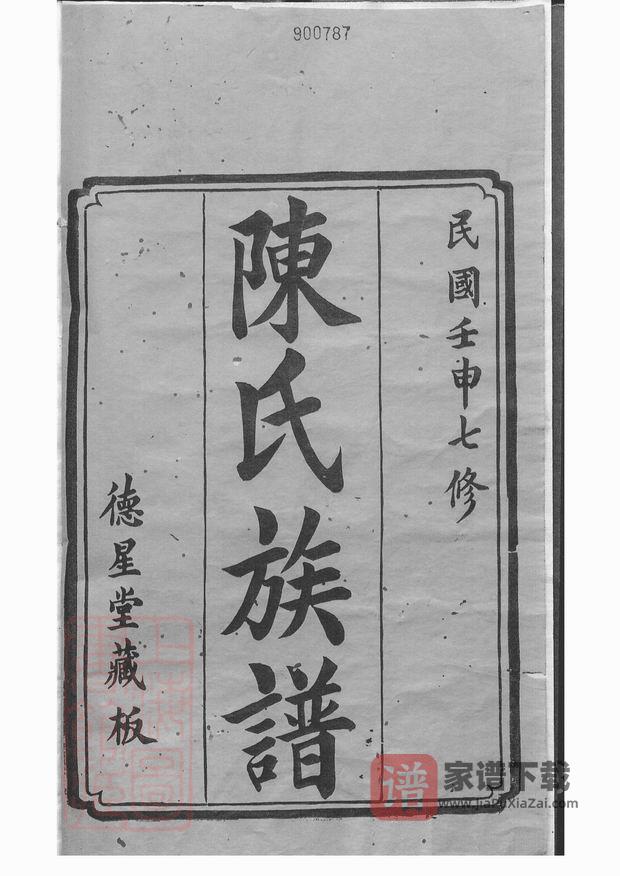 900787
民國壬申七修
陳氏族譜
德星堂藏板
谱 家谱下载
www.jiaPuXiaZai.com